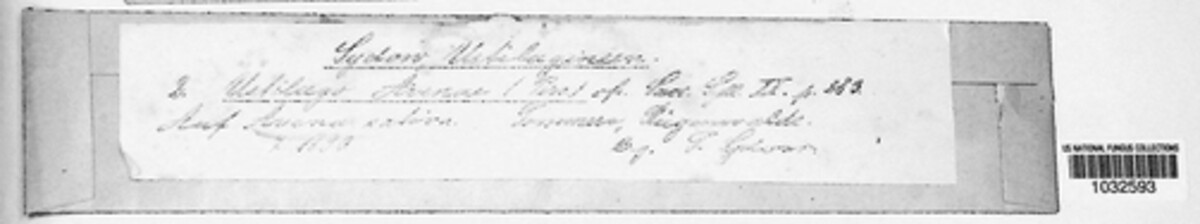 Sydow, Ustilagineen.
2. Ustilago Avenae (Pers) cf. Sacc. Syll. IX. p. 283.
Auf Avena sativa. Pommern, Rügenwalde.
1890 lg. P. Sydow
US NATIONAL FUNGUS COLLECTIONS
1032593